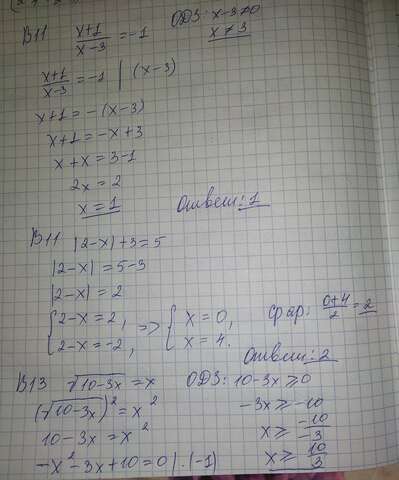 B11 (x+1)/(x-3) = -1 ОДЗ: x-3≠0
x≠3
(x+1)/(x-3) = -1 | (x-3)
x+1 = -(x-3)
x+1 = -x+3
x+x = 3-1
2x = 2
x = 1 Ответ: 1
B11 |2-x|+3=5
|2-x| = 5-3
|2-x| = 2
{ 2-x=2, => { x=0, (0+4)/2 = 2
{ 2-x=-2, { x=4.
Ответ: 2
B13 √(10-3x) = x ОДЗ: 10-3x ≥ 0
(√(10-3x))² = x² -3x ≥ -10
10-3x = x² x ≥ -10/-3
-x²-3x+10=0 |·(-1) x ≥ 10/3